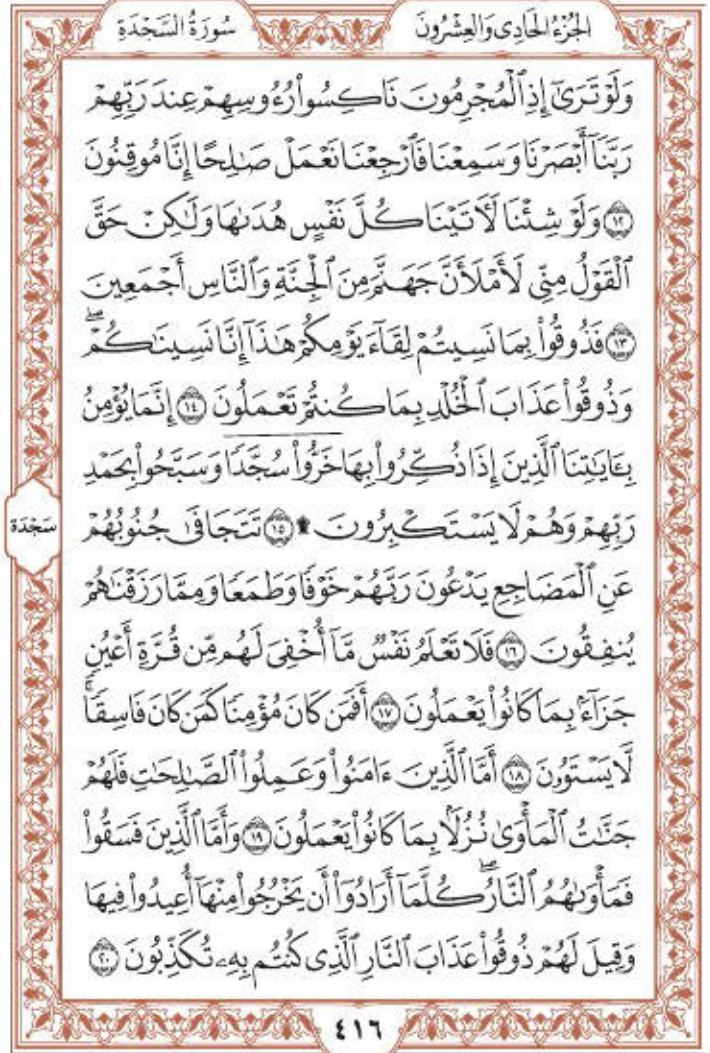 الجُزْءُ الحَادِى وَالعِشْرُونَ سُورَةُ السَّجْدَةِ
وَلَوْ تَرَىٰٓ إِذِ ٱلْمُجْرِمُونَ نَاكِسُوا۟ رُءُوسِهِمْ عِندَ رَبِّهِمْ
رَبَّنَآ أَبْصَرْنَا وَسَمِعْنَا فَٱرْجِعْنَا نَعْمَلْ صَـٰلِحًا إِنَّا مُوقِنُونَ
١٢ وَلَوْ شِئْنَا لَـَٔاتَيْنَا كُلَّ نَفْسٍ هُدَىٰهَا وَلَـٰكِنْ حَقَّ
ٱلْقَوْلُ مِنِّى لَأَمْلَأَنَّ جَهَنَّمَ مِنَ ٱلْجِنَّةِ وَٱلنَّاسِ أَجْمَعِينَ
١٣ فَذُوقُوا۟ بِمَا نَسِيتُمْ لِقَآءَ يَوْمِكُمْ هَـٰذَآ إِنَّا نَسِينَـٰكُمْ ۖ
وَذُوقُوا۟ عَذَابَ ٱلْخُلْدِ بِمَا كُنتُمْ تَعْمَلُونَ ١٤ إِنَّمَا يُؤْمِنُ
بِـَٔايَـٰتِنَا ٱلَّذِينَ إِذَا ذُكِّرُوا۟ بِهَا خَرُّوا۟ سُجَّدًا وَسَبَّحُوا۟ بِحَمْدِ
رَبِّهِمْ وَهُمْ لَا يَسْتَكْبِرُونَ ۩ ١٥ تَتَجَافَىٰ جُنُوبُهُمْ
سَجْدَة
عَنِ ٱلْمَضَاجِعِ يَدْعُونَ رَبَّهُمْ خَوْفًا وَطَمَعًا وَمِمَّا رَزَقْنَـٰهُمْ
يُنفِقُونَ ١٦ فَلَا تَعْلَمُ نَفْسٌ مَّآ أُخْفِىَ لَهُم مِّن قُرَّةِ أَعْيُنٍ
جَزَآءًۢ بِمَا كَانُوا۟ يَعْمَلُونَ ١٧ أَفَمَن كَانَ مُؤْمِنًا كَمَن كَانَ فَاسِقًا ۚ
لَّا يَسْتَوُۥنَ ١٨ أَمَّا ٱلَّذِينَ ءَامَنُوا۟ وَعَمِلُوا۟ ٱلصَّـٰلِحَـٰتِ فَلَهُمْ
جَنَّـٰتُ ٱلْمَأْوَىٰ نُزُلًۢا بِمَا كَانُوا۟ يَعْمَلُونَ ١٩ وَأَمَّا ٱلَّذِينَ فَسَقُوا۟
فَمَأْوَىٰهُمُ ٱلنَّارُ ۖ كُلَّمَآ أَرَادُوٓا۟ أَن يَخْرُجُوا۟ مِنْهَآ أُعِيدُوا۟ فِيهَا
وَقِيلَ لَهُمْ ذُوقُوا۟ عَذَابَ ٱلنَّارِ ٱلَّذِى كُنتُم بِهِۦ تُكَذِّبُونَ ٢٠
٤١٦